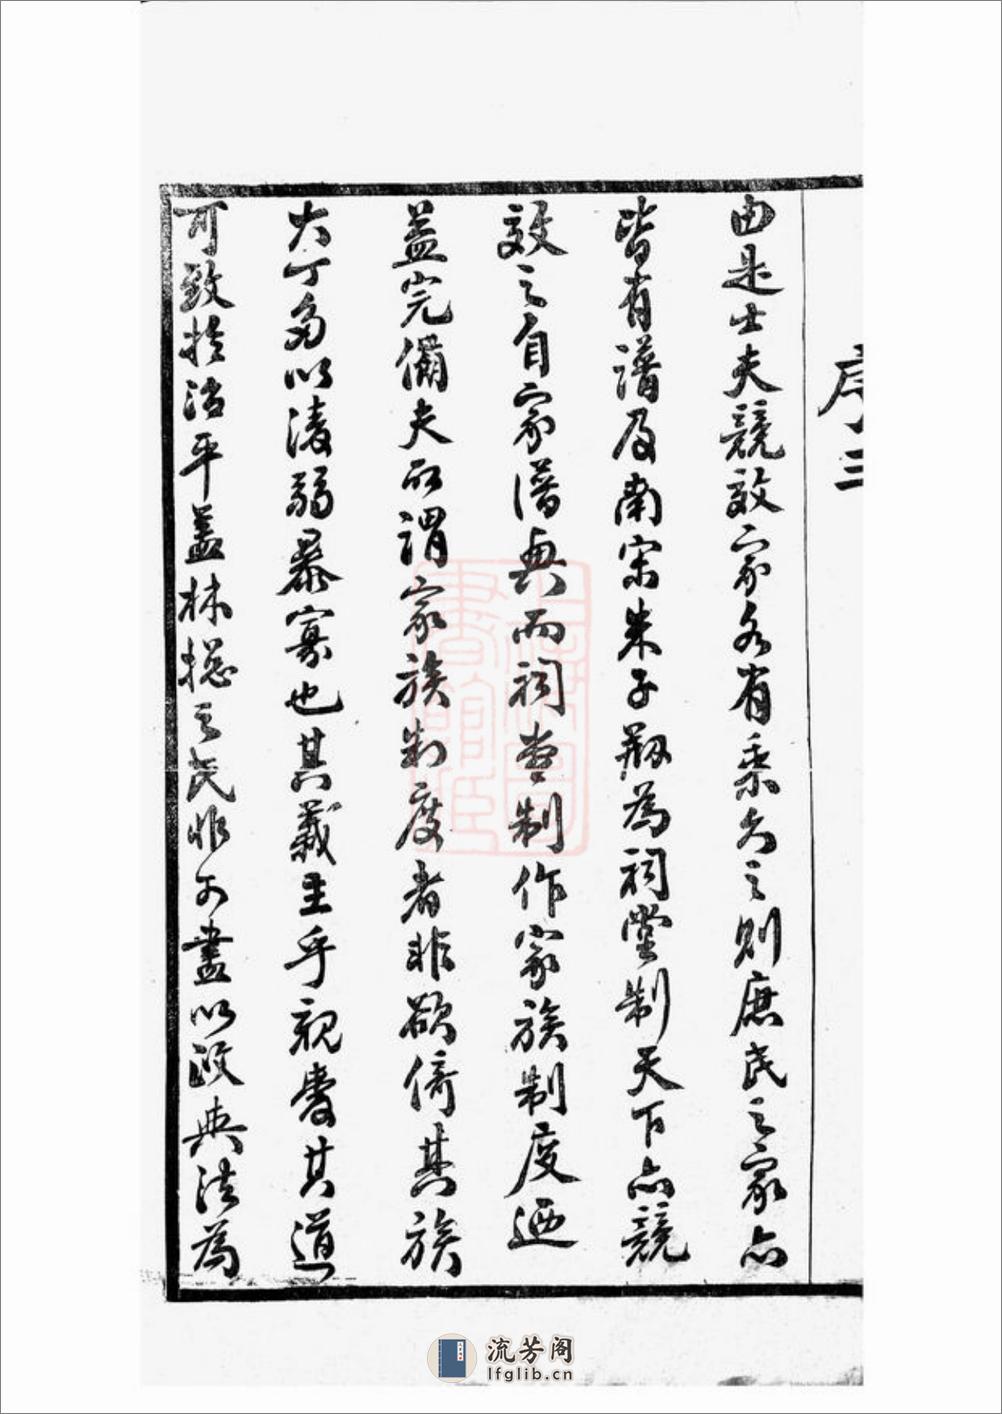 序三
由是士夫競效家各有乘久之則庶民之家亦
皆有譜及南宋朱子剏為祠堂制天下亦競
效之自家譜興而祠堂制作家族制度迺
益完備夫所謂家族制度者非欲倚其族
大丁多以淩弱暴寡也其義主乎親愛其道
可致於治平蓋林總之民非可盡以政典法為
流芳阁
lfglib.cn